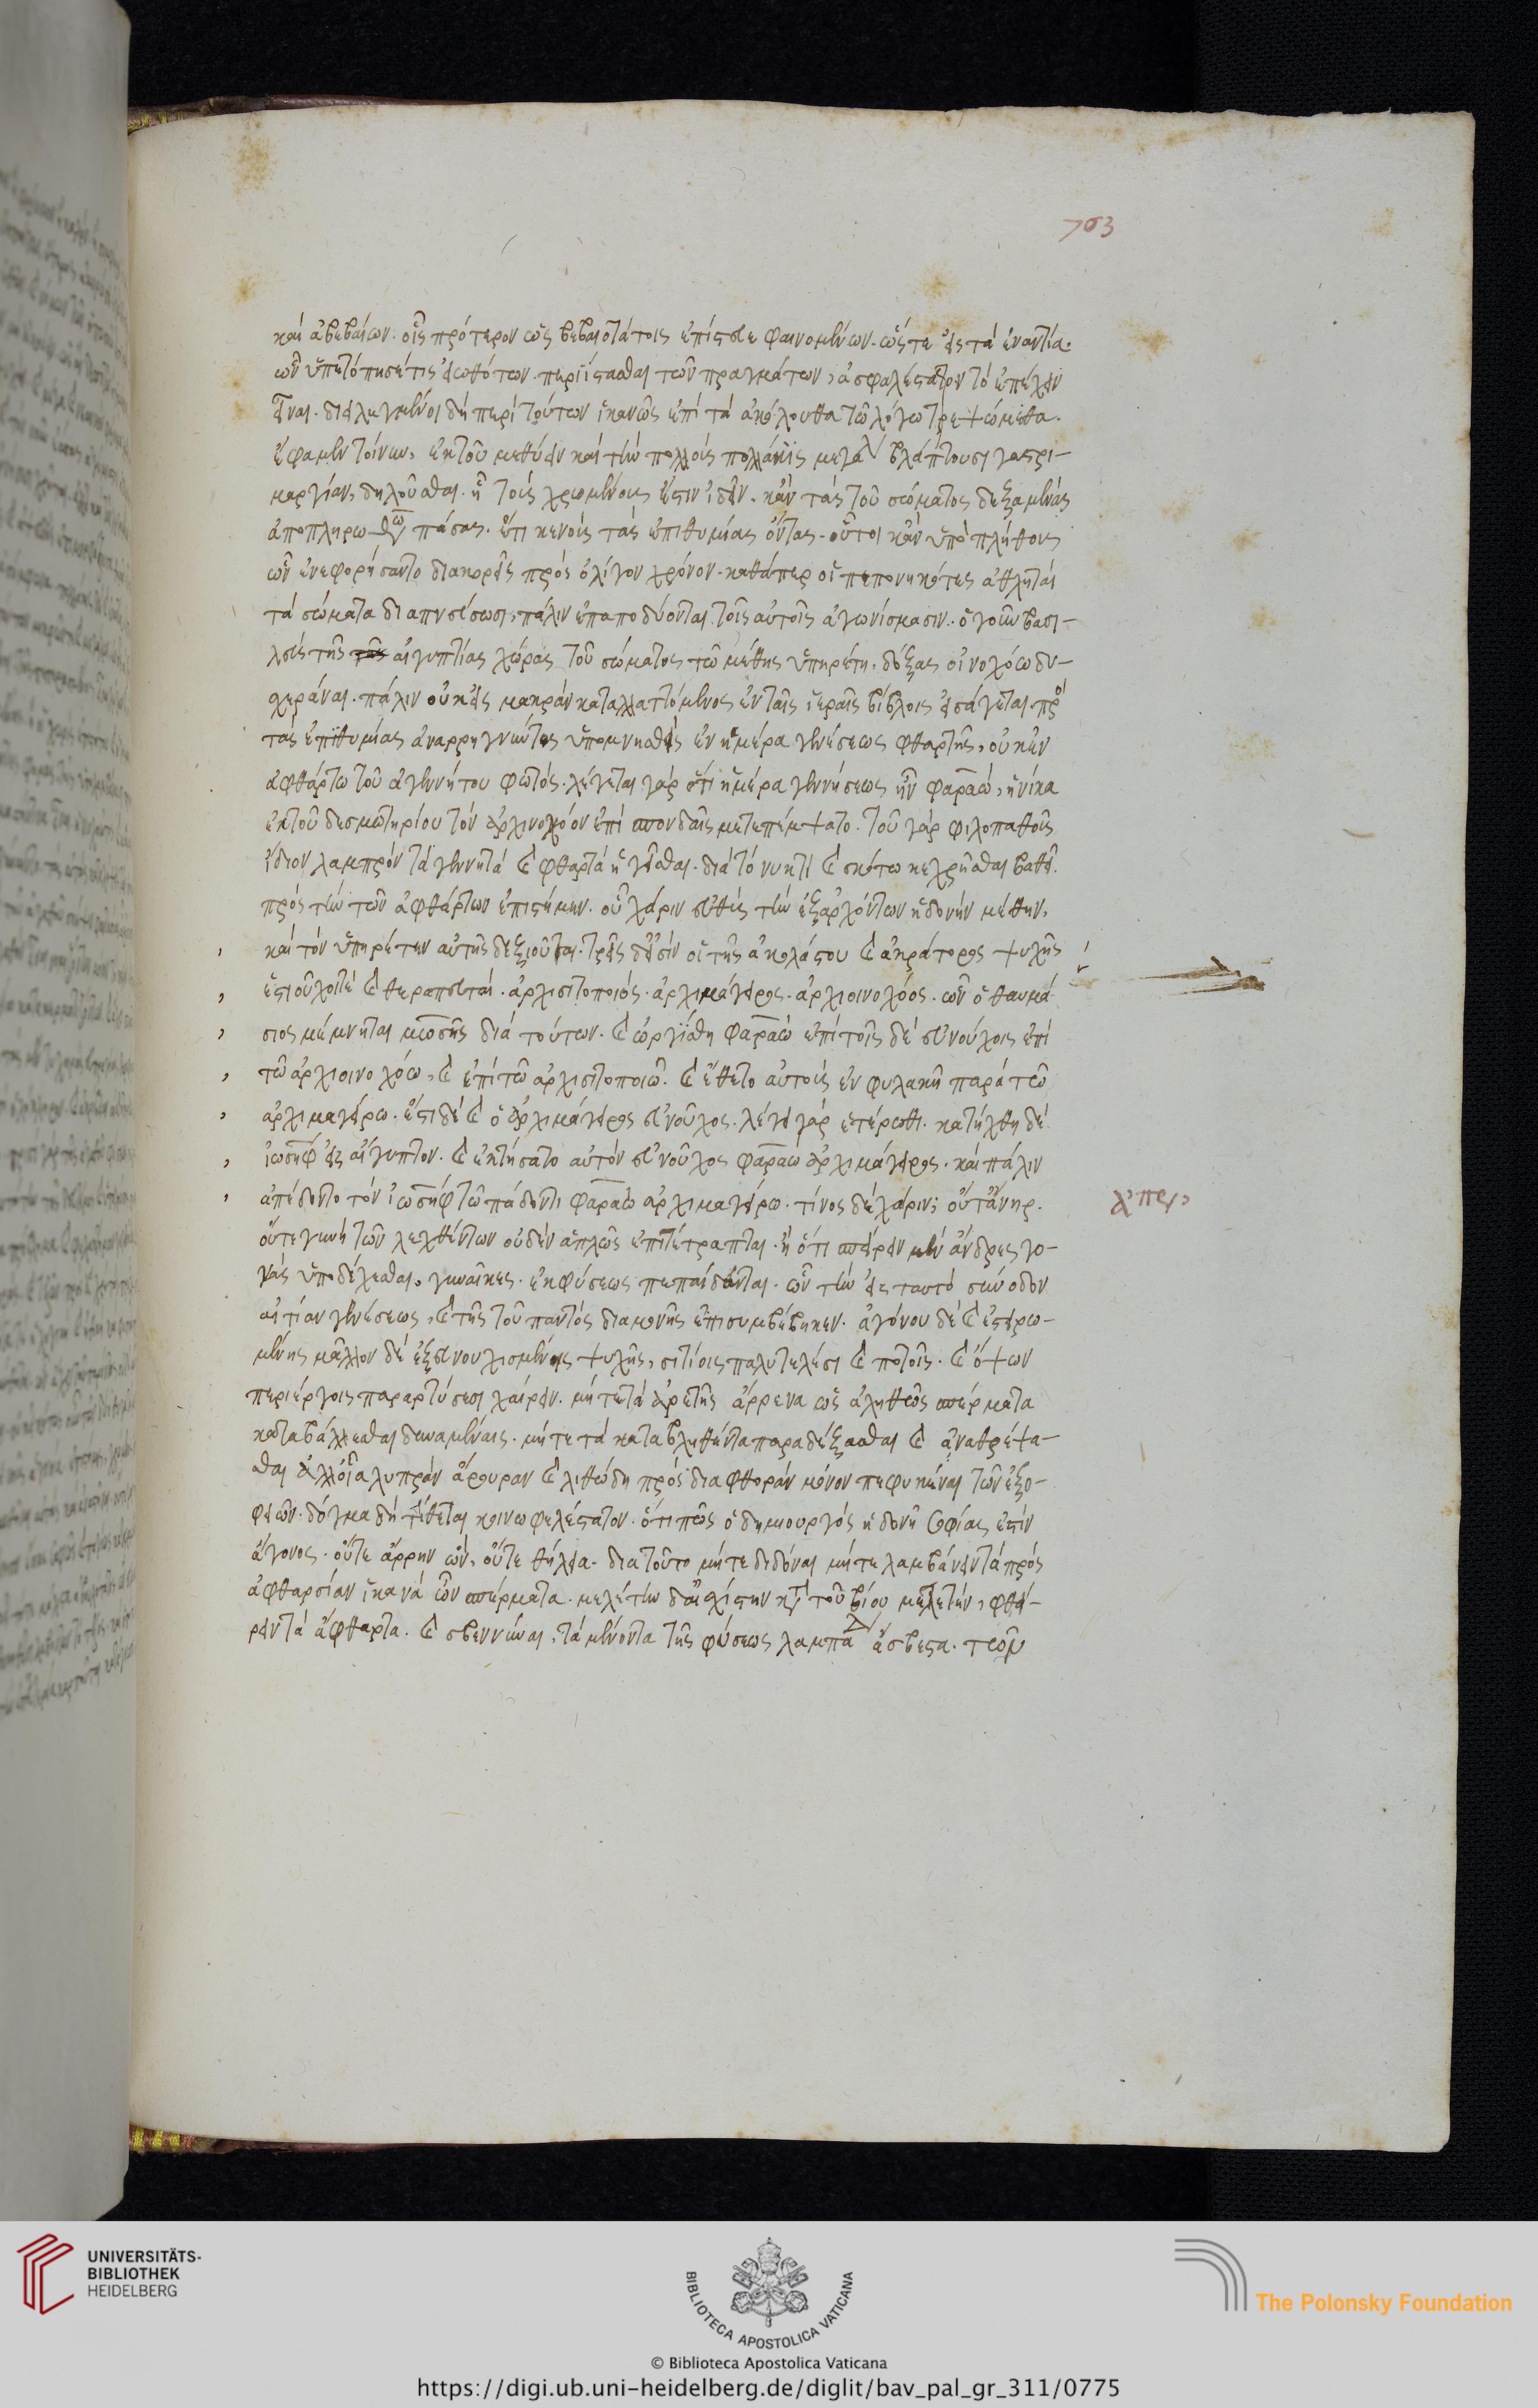 703
καὶ ἀβεβαίων. οἷς πρότερον ὡς βεβαιοτάτοις ἐπίστευε φαινομένων. ὥστε εἰς τὰ ἐναντία.
ὧν ὑπετόπησέ τις εἰωθότων περιίστασθαι τῶν πραγμάτων, ἀσφαλέστατον τὸ ἐπέχειν
εἶναι. διειλεγμένοι δὴ περὶ τούτων ἱκανῶς ἐπὶ τὰ ἀκόλουθα τῷ λόγῳ τρεψώμεθα.
ἔφαμεν τοίνυν, ἐκ τοῦ μεθύειν καὶ τὴν πολλοὺς πολλάκις μεγάλα βλάπτουσι γαστρι-
μαργίαν, δηλοῦσθαι. ᾗ τοὺς χρωμένους ἔστιν ἰδεῖν. κἂν τὰς τοῦ σώματος δεξαμενὰς
ἀποπληρωθῶσι πάσας. ἔτι κενοὺς τὰς ἐπιθυμίας ὄντας. οὗτοι κἂν ὑπὸ πλήθους
ὧν ἐνεφορήσαντο διακορεῖς πρὸς ὀλίγον χρόνον. καθάπερ οἱ πεπονηκότες ἀθληταὶ
τὰ σώματα διαπνεύσωσι, πάλιν ἐπαποδύονται τοῖς αὐτοῖς ἀγωνίσμασιν. ὁ γοῦν βασι-
λεὺς τῆς αἰγυπτίας χώρας τοῦ σώματος τῷ μέθης ὑπηρέτῃ, δόξας οἰνοχόῳ δυ-
χεράναι. πάλιν οὐκ εἰς μακρὰν καταλλαττόμενος ἐν ταῖς ἱεραῖς βίβλοις εἰσάγεται πρὸ
τὰς ἐπιθυμίας ἀναρρηγνύντος ὑπομνησθεὶς ἐν ἡμέρα γενέσεως φθαρτῆς, οὐκ ἐν
ἀφθάρτῳ τοῦ ἀγεννήτου φωτός. λέγεται γὰρ ὅτι ἡμέρα γεννήσεως ἦν φαραώ, ἡνίκα
ἐκ τοῦ δεσμωτηρίου τὸν ἀρχινοχόον ἐπὶ σπονδαῖς μετεπέμψατο. τοῦ γὰρ φιλοπαθοῦς
ἴδιον λαμπρὸν τὰ γεννητὰ καὶ φθαρτὰ ἡγεῖσθαι. διὰ τὸ νυκτὶ καὶ σκότῳ κεχρῆσθαι βαθεῖ.
πρὸς τὴν τῶν ἀφθάρτων ἐπιστήμην. οὗ χάριν εὐθὺς τὴν ἐξάρχουσαν ἡδονὴν μέθην,
καὶ τὸν ὑπηρέτην αὐτῆς δεξιοῦται. τρεῖς δ' εἰσὶν οἱ τῆς ἀκολάστου καὶ ἀκράτορος ψυχῆς
ἑστιοῦχοί τε καὶ θεραπευταί. ἀρχισιτοποιός. ἀρχιμάγειρος. ἀρχιοινοχόος. ὧν ὁ θαυμά-
σιος μέμνηται μωσῆς διὰ τούτων. καὶ ὠργίσθη φαραὼ ἐπὶ τοῖς δὲ εὐνούχοις ἐπὶ
τῷ ἀρχιοινοχόῳ, καὶ ἐπὶ τῷ ἀρχισιτοποιῷ. καὶ ἔθετο αὐτοὺς ἐν φυλακῇ παρὰ τῷ
ἀρχιμαγείρῳ. ἔστι δὲ καὶ ὁ ἀρχιμάγειρος εὐνοῦχος. λέγει γὰρ ἑτέρωθι. κατήχθη δὲ
ἰωσὴφ εἰς αἴγυπτον. καὶ ἐκτήσατο αὐτὸν εὐνοῦχος φαραὼ ἀρχιμάγειρος. καὶ πάλιν
ἀπέδοντο τὸν ἰωσὴφ τῷ σπάδοντι φαραὼ ἀρχιμαγείρῳ. τίνος δὲ χάριν; οὔτ' ἀνὴρ.
οὔτε γυνὴ τῶν λεχθέντων οὐδὲν ἁπλῶς ἐπιτέτραπται. ἢ ὅτι σπείρειν μὲν ἄνδρες γο-
νὰς ὑποδέχεσθαι, γυναῖκες. ἐκ φύσεως πεπαίδευνται. ὧν τὴν εἰς ταυτὸ σύνοδον
αἰτίαν γενέσεως, καὶ τῆς τοῦ παντὸς διαμονῆς ἐπισυμβέβηκεν. ἀγόνου δὲ καὶ ἐστειρω-
μένης μᾶλλον δὲ ἐξευνουχισμένης ψυχῆς, σιτίοις πολυτελέσι καὶ ποτοῖς. καὶ ὄψων
περιέργοις παραρτύσεσι χαίρειν. μήτε τὰ ἀρετῆς ἄρρενα ὡς ἀληθῶς σπέρματα
καταβάλλεσθαι δυναμέναις. μήτε τὰ καταβληθέντα παραδέξασθαι καὶ ἀναθρέψα-
σθαι ἀλλ' οἷα λυπρὰν ἄρουραν καὶ λιθώδη πρὸς διαφθορὰν μόνον πεφυκέναι τῶν ἐξο-
φειῶν. δόγμα δὴ τίθεται κοινωφελέστατον. ὅτι πῶς ὁ δημιουργὸς ἡδονῆς σοφίας ἐστὶν
ἄγονος. οὔτε ἄρρην ὤν, οὔτε θήλεια. διὰ τοῦτο μήτε διδόναι μήτε λαμβάνειν τὰ πρὸς
ἀφθαρσίαν ἱκανὰ ὢν σπέρματα. μελέτην δ' αἰσχίστην κατὰ τοῦ βίου μελετᾶν, φθεί-
ρειν τὰ ἄφθαρτα. καὶ σβεννύναι, τὰ μένοντα τῆς φύσεως λαμπάδα ἄσβεστα. τῶν
UNIVERSITÄTS-
BIBLIOTHEK
HEIDELBERG
BIBLIOTECA APOSTOLICA VATICANA
The Polonsky Foundation
© Biblioteca Apostolica Vaticana
https://digi.ub.uni-heidelberg.de/diglit/bav_pal_gr_311/0775